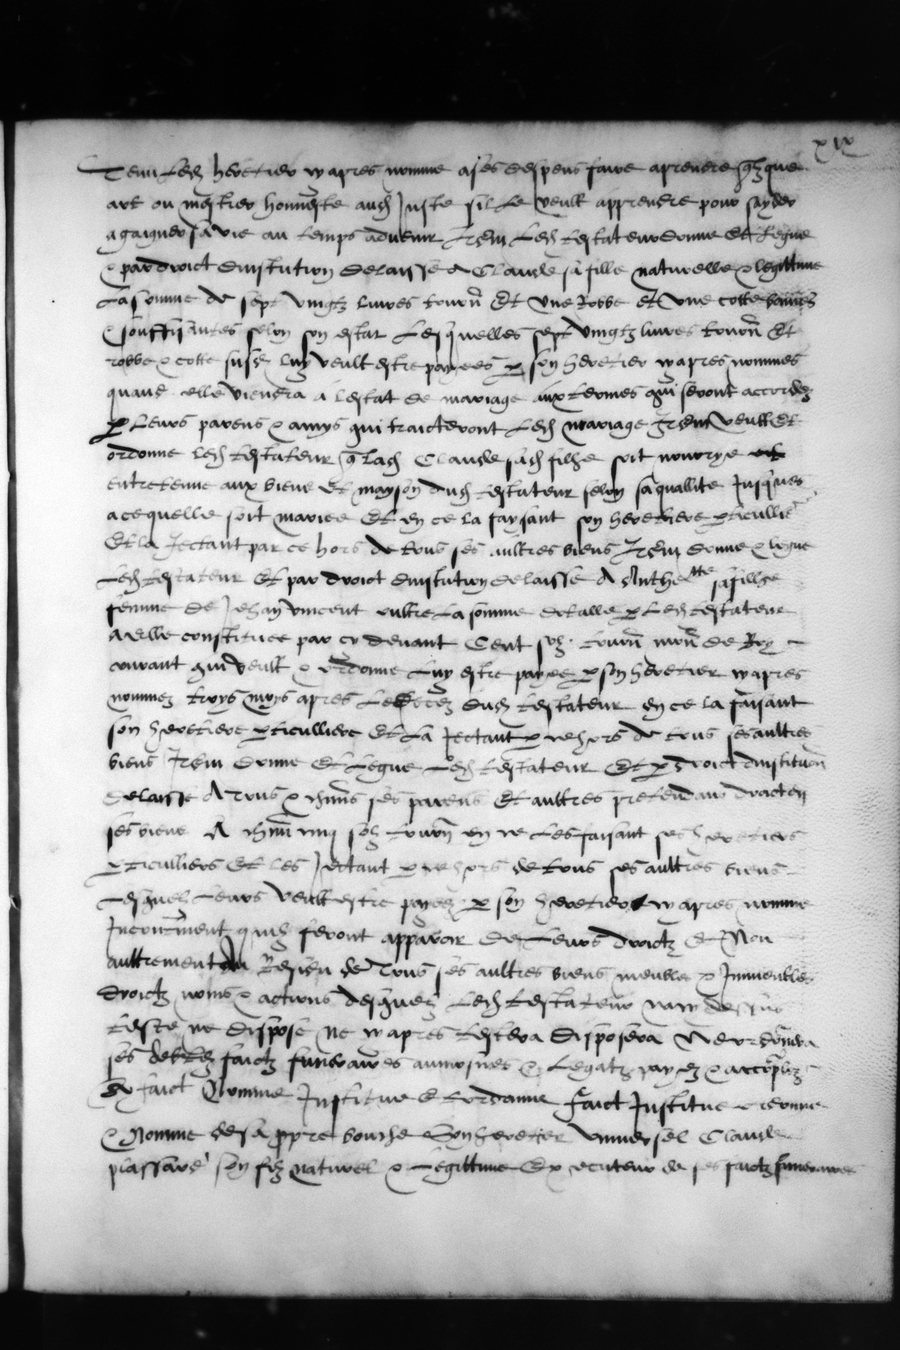 xix
Tenu led heretier cy apres nomme a ses despens faire aprendre q̃lque
art ou mestier honneste aud Juste sil le veult apprendre pour sayder
a gaigner sa vie au temps advenir Item led testateur donne et legue
& par droict dinstitution delaisse a Claude sa fille naturelle & legittime
La somme de sept vingtz livres tourn et une Robbe et une cotte bonnes
& souffisantes selon son estat Lesquelles sept vingtz livres tourn et
robbe & cotte susd luy veult estre payees p son heretier cy apres nommes
quand elle viendra a lestat de mariage aux termes qui seront accordez
p Leurs parens & amys qui traicteront Led mariage Item veult et
ordonne led testateur q̃ lad Claude sad filhe soit nourrye et
entretenue aux biens et mayson dud testateur selon sa quallite Jusques
a ce quelle soit mariee et en ce la faysant son heretiere pticulliere
et la Jectant par ce hors de tous ses aultres biens Item donne & legue
Led testateur et par droict dinstitution delaisse A Anthette sa filhe
femme de Jehan Vincent oultre la somme p Led testateur
a elle constituee par cy devant Cent solz tourn monn de Roy
courant qui veult & ordonne luy estre payee p son heretier cy apres
nomme troys moys apres le deces dud testateur en ce la faisant
son heretiere pticulliere et la Jectant p ce hors de tous ses aultres
biens Item donne et legue led testateur et p droict dinstitution
delaisse A tous & chũns ses parens et aultres pretendans droict en
ses biens A chũn cinq solz tourn en ce les faisant ses heretiers
pticulliers et les Jectant p ce hors de tous ses aultres biens
Lesquelz leurs veult estre payez p son heretier cy apres nomme
Incontinent quilz feront apparoir de leurs droictz et Non
aultrement Au Residu de Tous ses aultres biens meubles & Immeubles
droictz noms & actions desquelz led testateur nan dessus
teste ne dispose ne cy apres testera disposera Ne ordonnera
ses debtez faictz funeraires aumosnes & legatz payez & accompliz
A faict Nomme Institue et ordonne faict Institue ordonne
& Nomme de sa ppre bouche Son heretier universel Claude
piassard son filz naturel & legittime Executeur de ses faictz funeraires